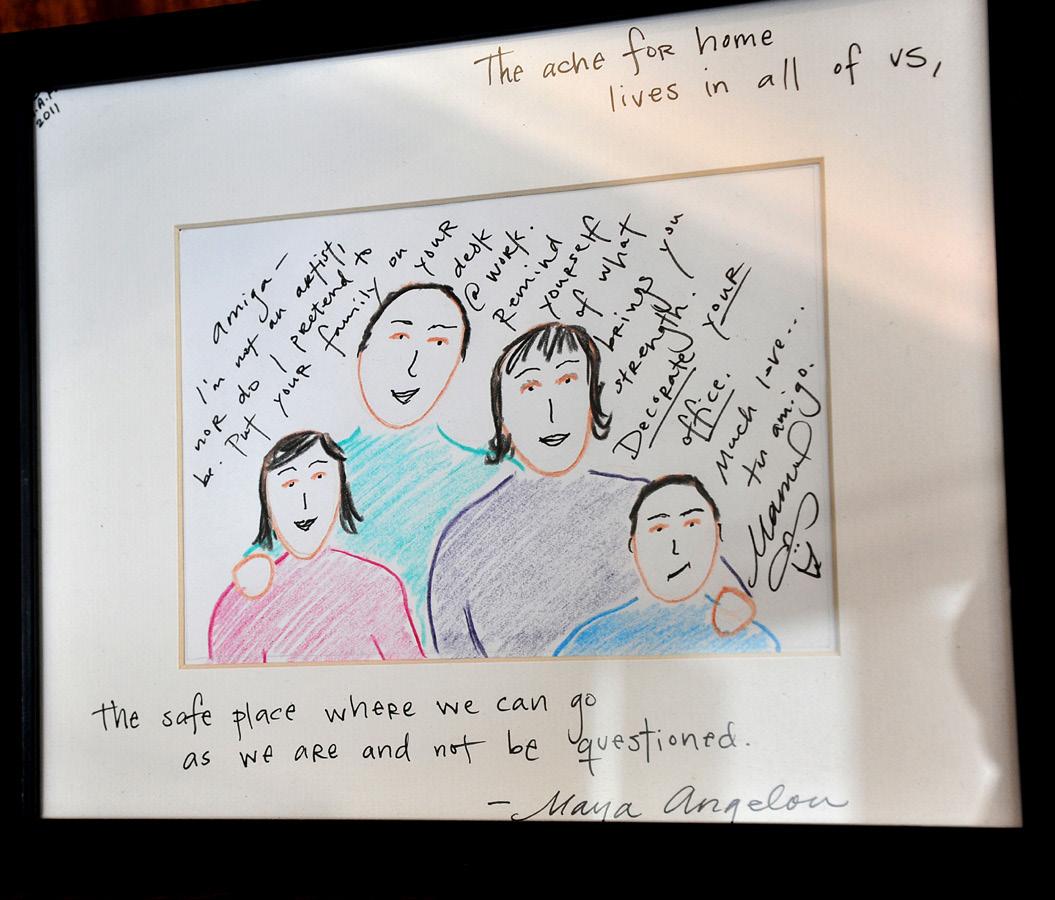 2011
The ache for home
lives in all of us,
amiga—
I'm not an artist,
nor do I pretend to
be. Put your family on your
desk
@ work.
Remind
yourself
of what
brings you
strength.
Decorate your
office.
Much love...
tu amigo.
the safe place where we can go
as we are and not be questioned.
— Maya Angelou